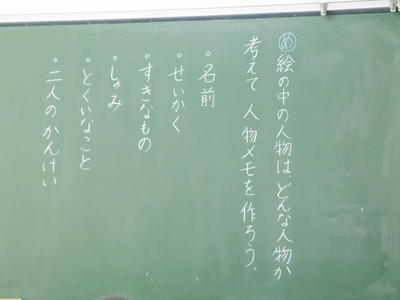 め 絵の中の人物は、どんな人物か
考えて、人物メモを作ろう。
・名前
・せいかく
・すきなもの
・しゅみ
・とくいなこと
・二人のかんけい